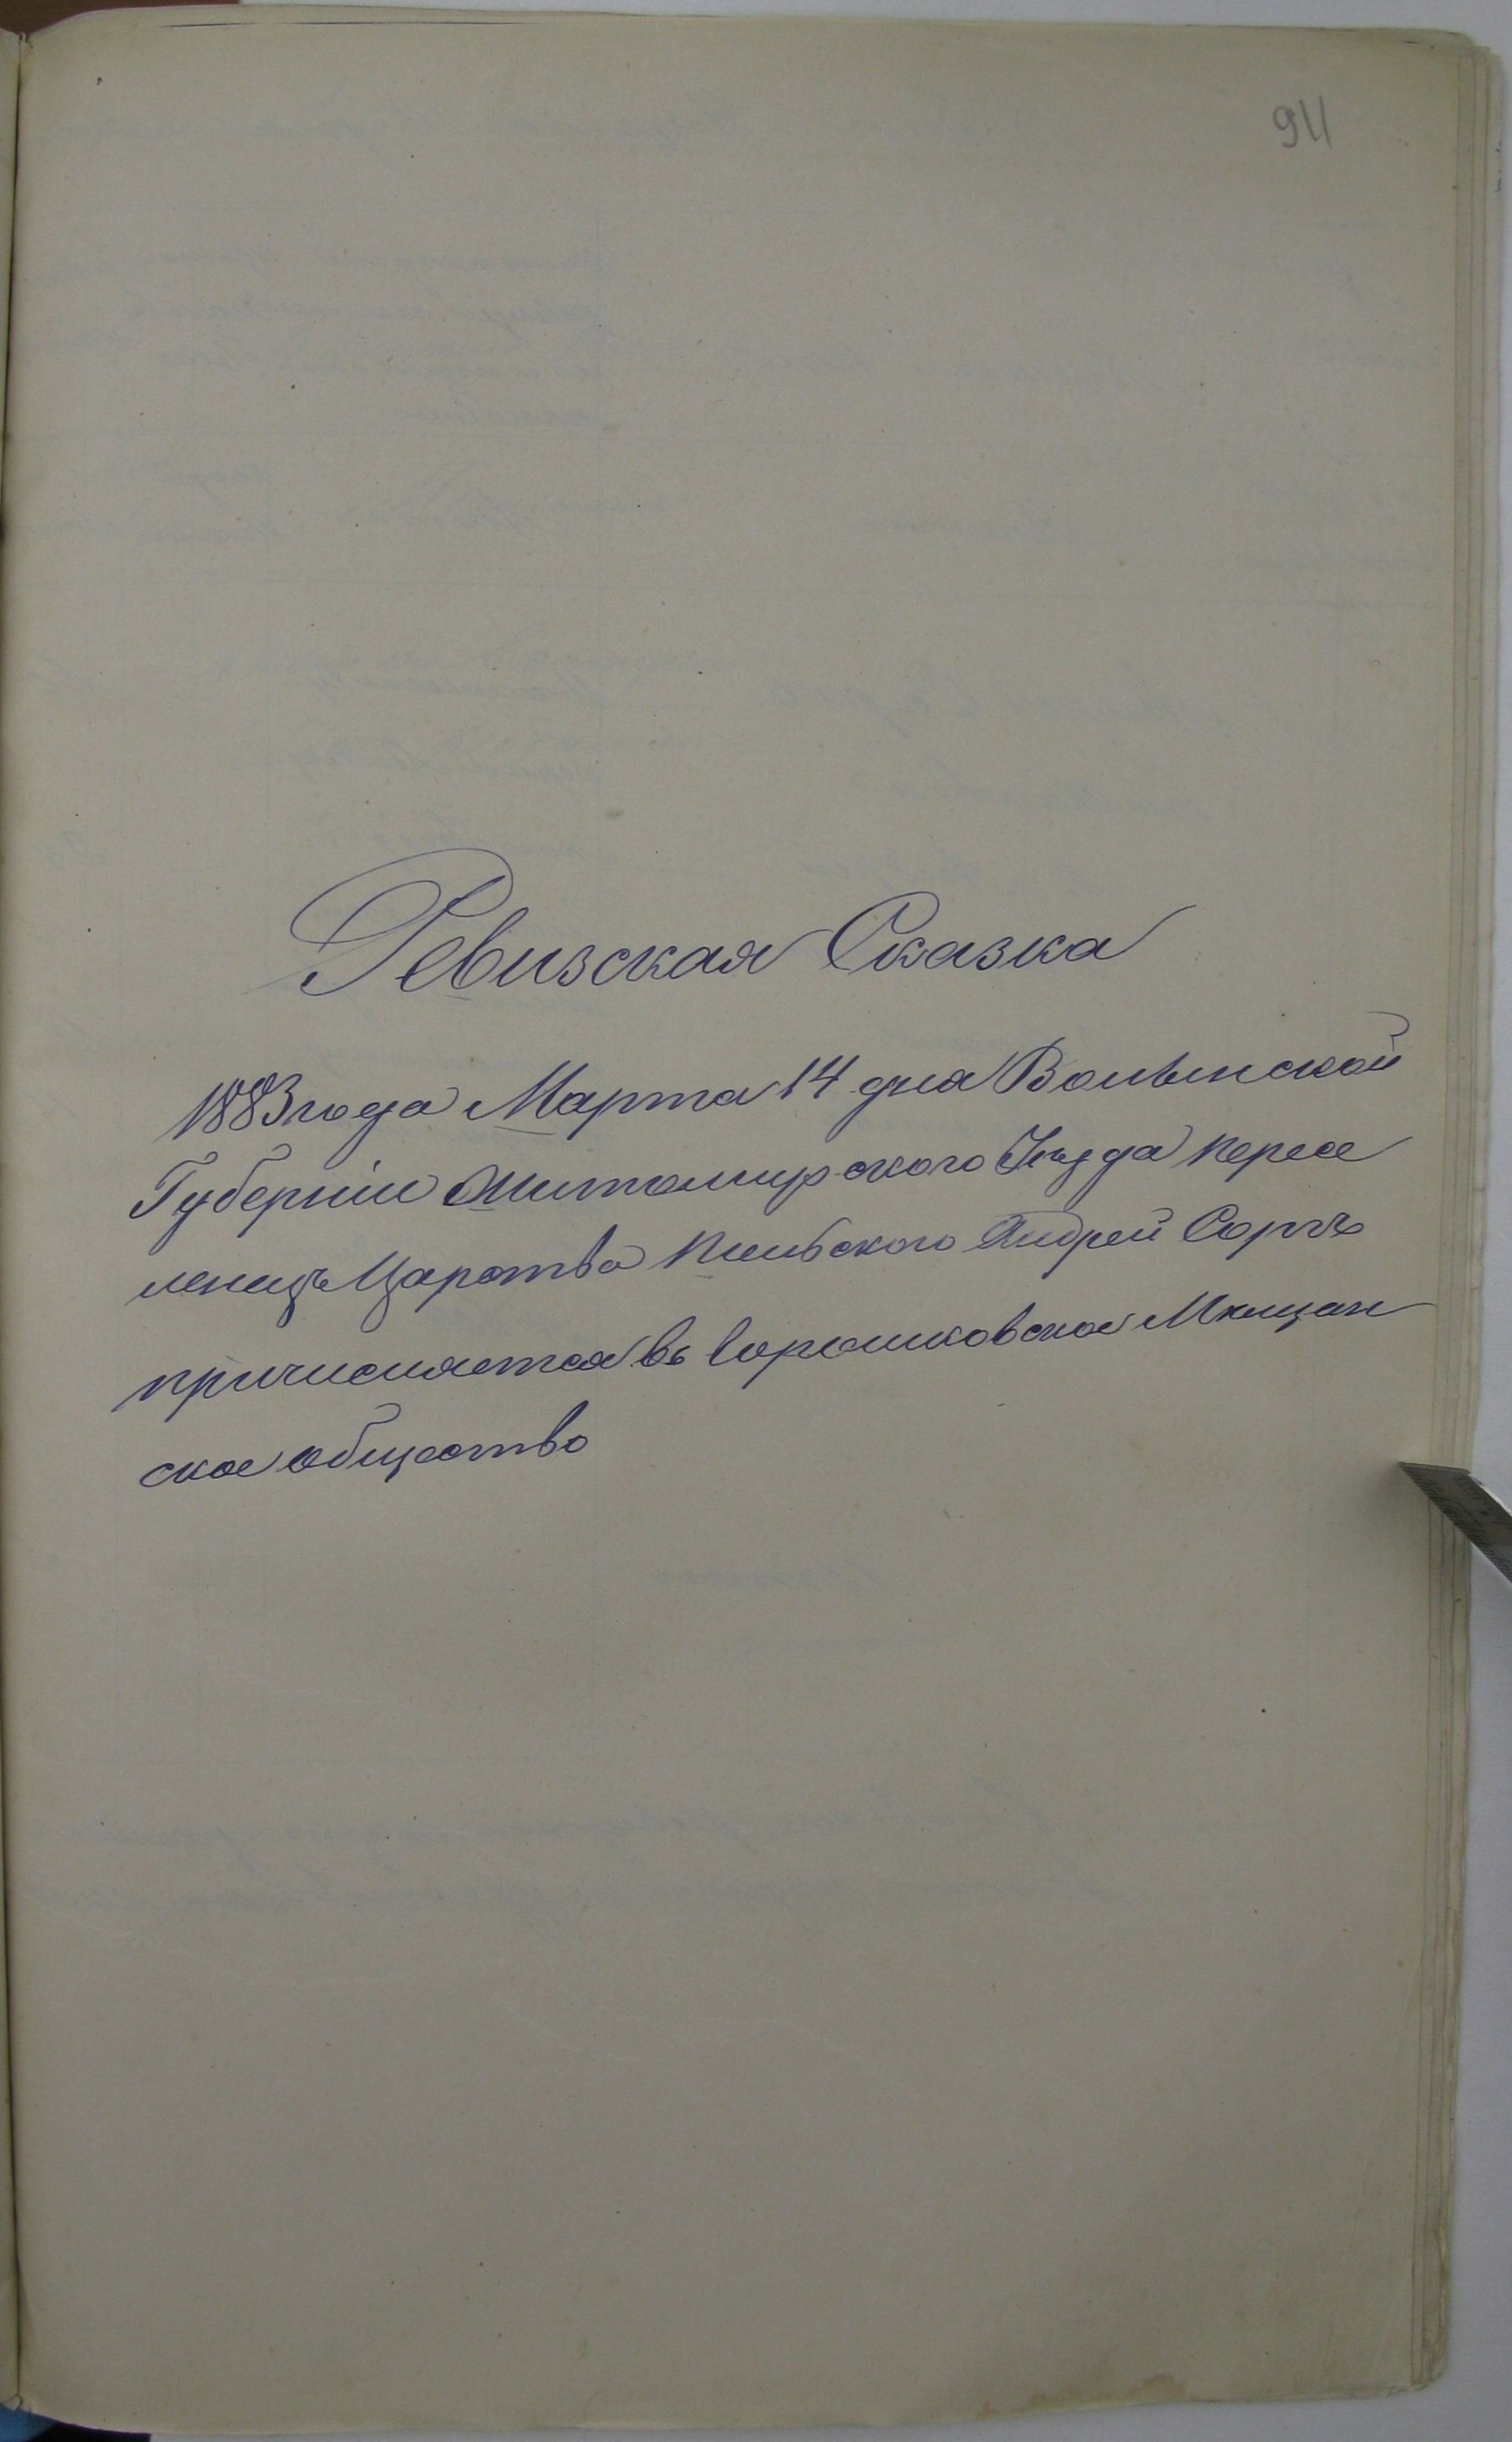 911
Ревизская Сказка
1883 года Марта 14 дня Волынской
Губерніи Житомирского Уѣзда пересе
ленецъ Царства Польского Андрей
причисляется въ Горошковское Мѣщан
ское общество